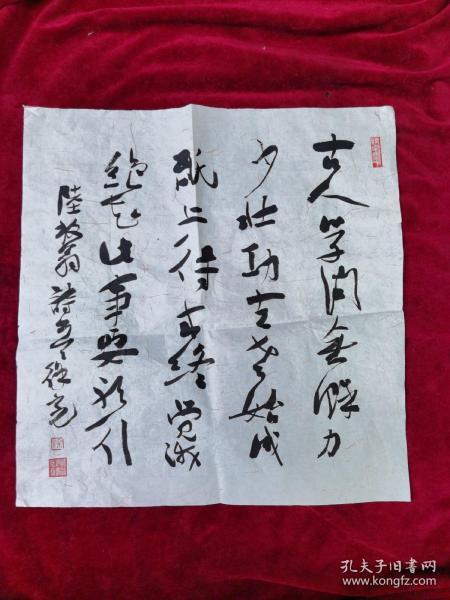 古人学问無遗力
少壮功夫老始成
纸上得来终觉浅
绝知此事要躬行
陸放翁詩
孔夫子旧书网
www.kongfz.com